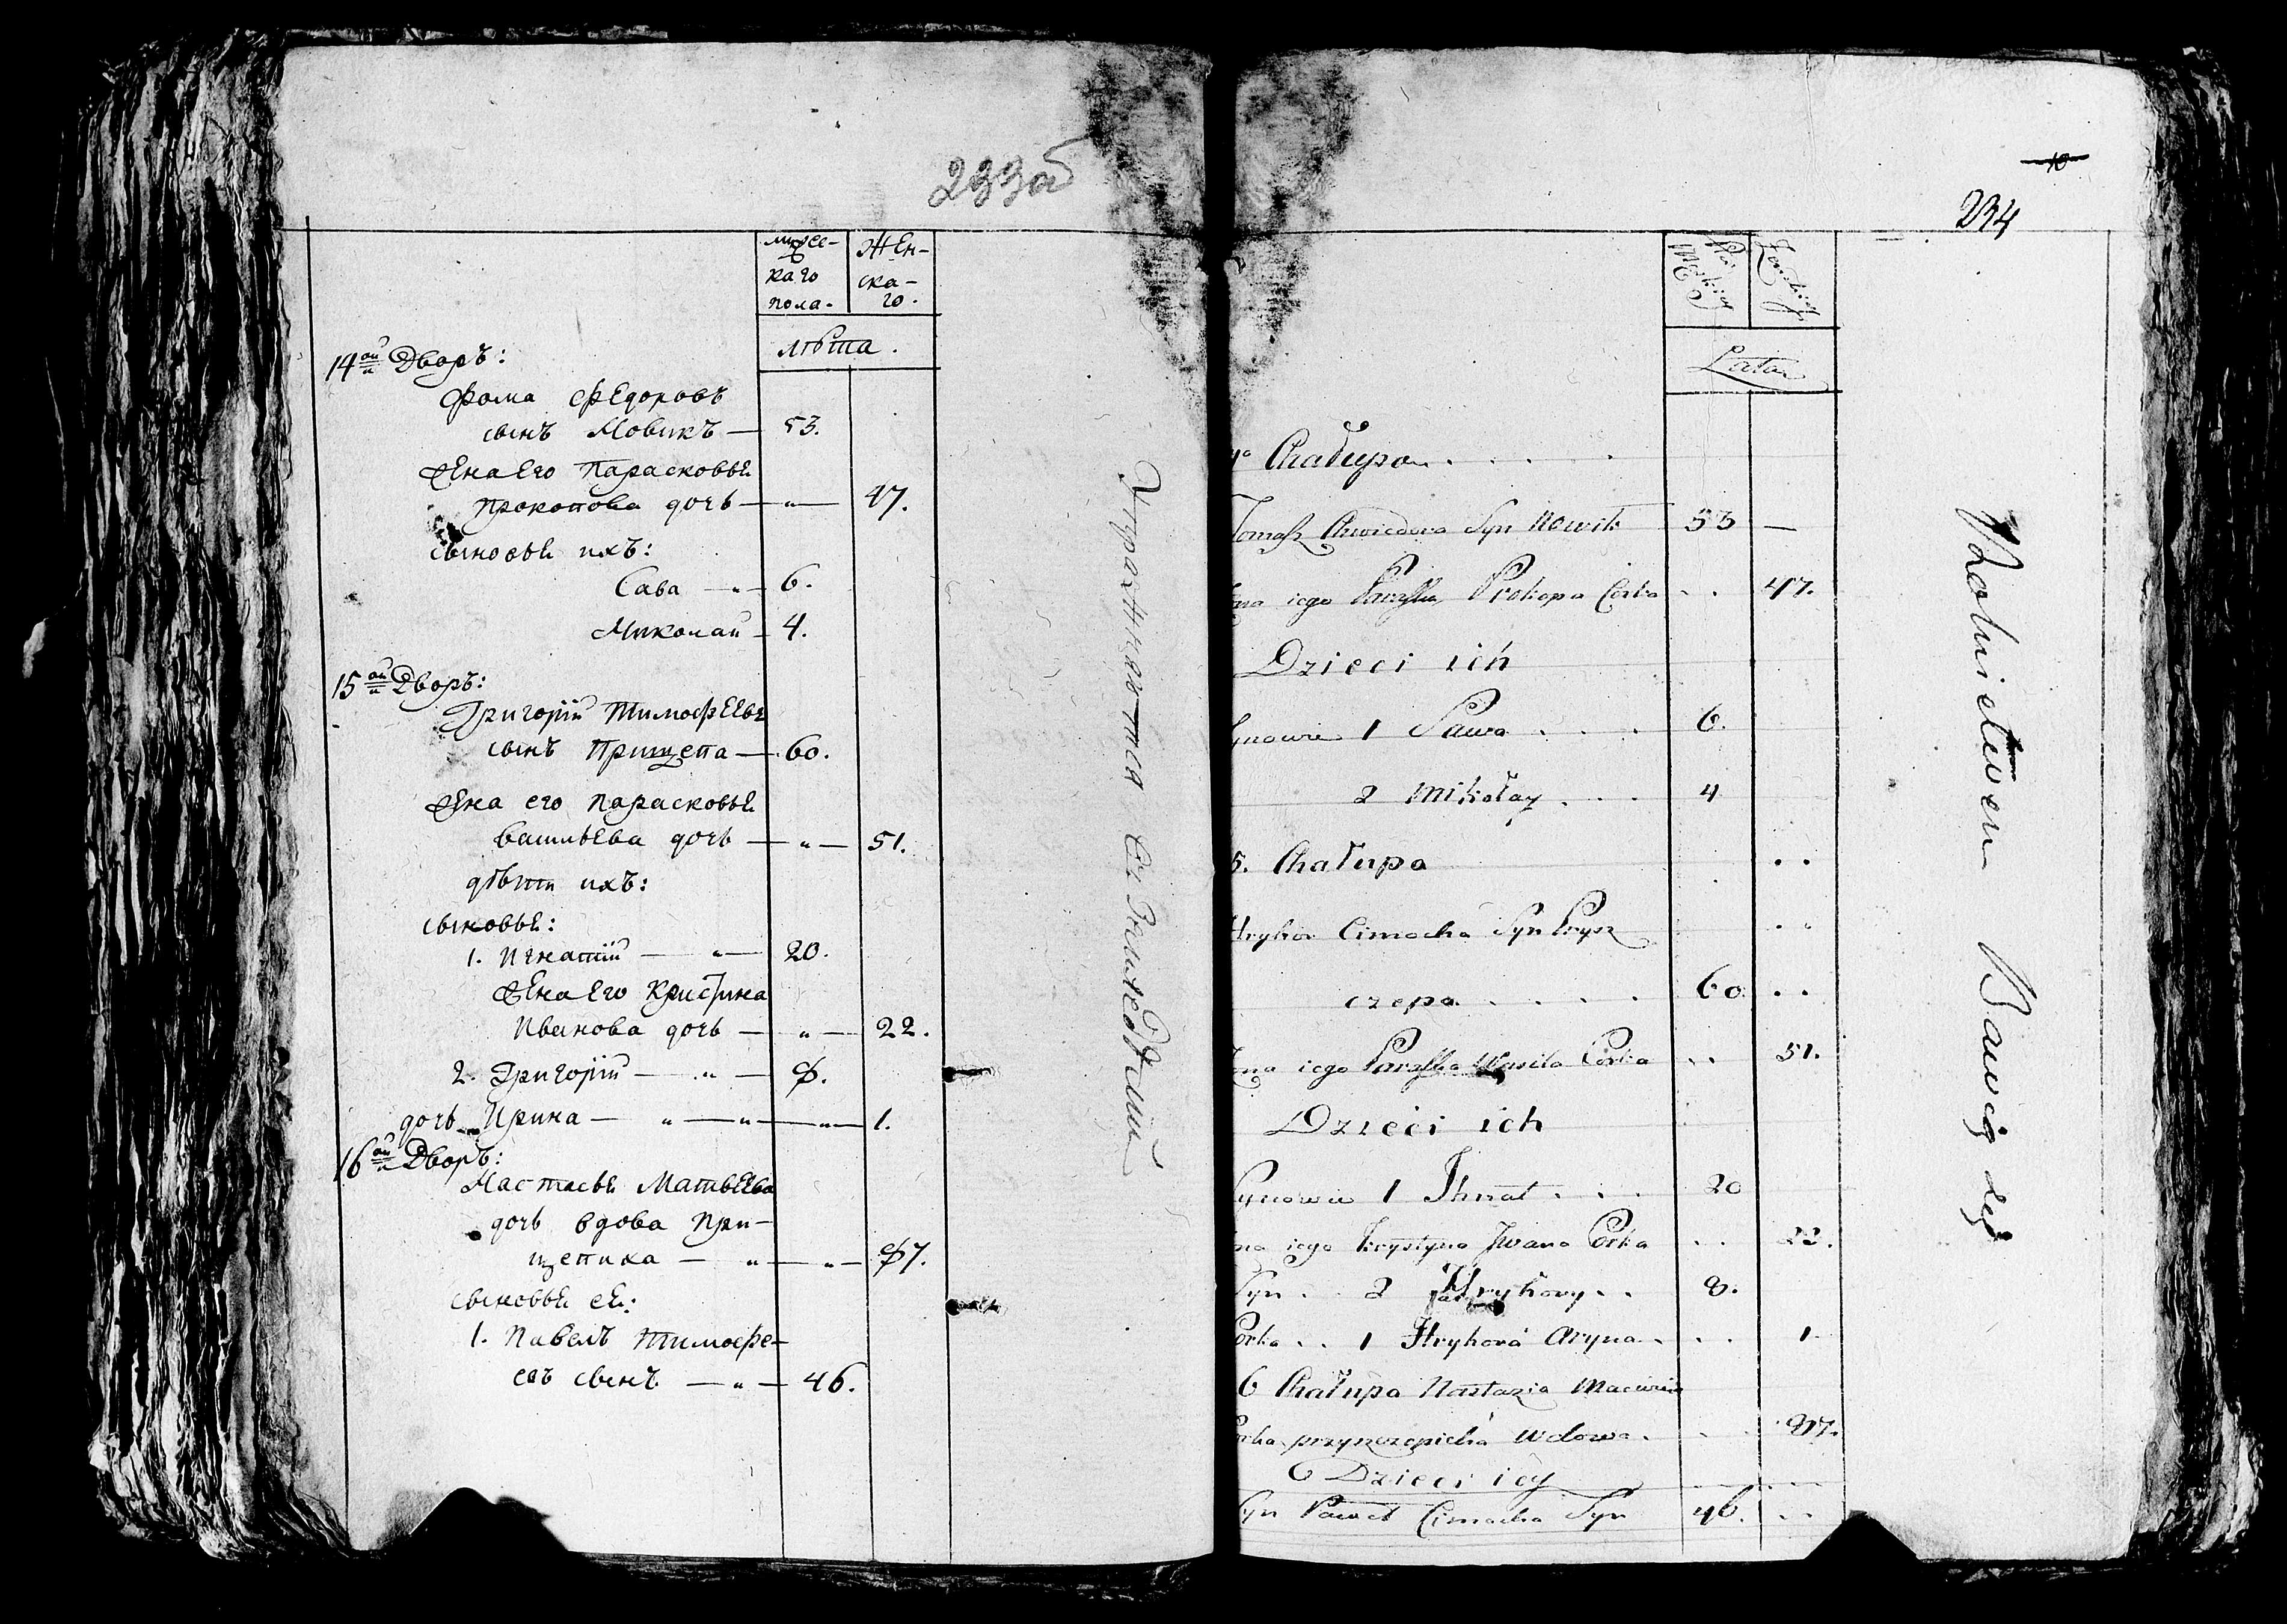 233об
мужес-
каго
пола.
Жен-
ска-
го.
лѣта.
14ой Дворъ:
Фома Федоровъ
сынъ Новикъ — 53.
Жена Его Парасковья
Прокопова дочь — „ — 47.
сыновья ихъ:
Сава — „ — 6.
Миколай — 4.
15ой Дворъ:
Григорій Тимофеевъ
сынъ Прищепа — 60.
Жена его Парасковья
Васильева дочь — „ — 51.
дѣти ихъ:
сыновья:
1. Игнатій — „ — 20.
Жена Его Кристина
Иванова дочь — „ — 22.
2. Григорій — „ — 8.
дочь Ирина — „ — „ — „ — 1.
16ой Дворъ:
Настасья Матвеева
дочь вдова При-
щепиха — „ — „ — 87.
сыновья ея:
1. Павелъ Тимофе-
евъ сынъ — „ — 46.
10
234
Płci
Męskiey
Żenskiey
Lata
4a Chałupa . . . . .
Tomasz Chwiedora Syn Nowik 53 —
ona iego Paraska Prokopa Corka . . 47.
Dzieci ich
Synowie 1 Sawa . . . . 6.
2 Mikołay . . . 4
5. Chałupa . .
Hryhor Cimocha Syn Prysz . .
czepa . . . . 60. . .
ona iego Paraska Wasila Corka . . 51.
Dzieci ich
Synowie 1 Ihnat . . . 20
na iego Krystyna Jwana Corka . . 22.
Syn . . 2 Hryhory . . 8.
Corka . . 1 Hryhora Aryna . . . 1
6 Chałupa Nastazia Macieia
Corka przyszczepicha Wdowa . . . 87.
6 Dzieci iey . . .
Syn Paweł Cimocha Syn 46. . .